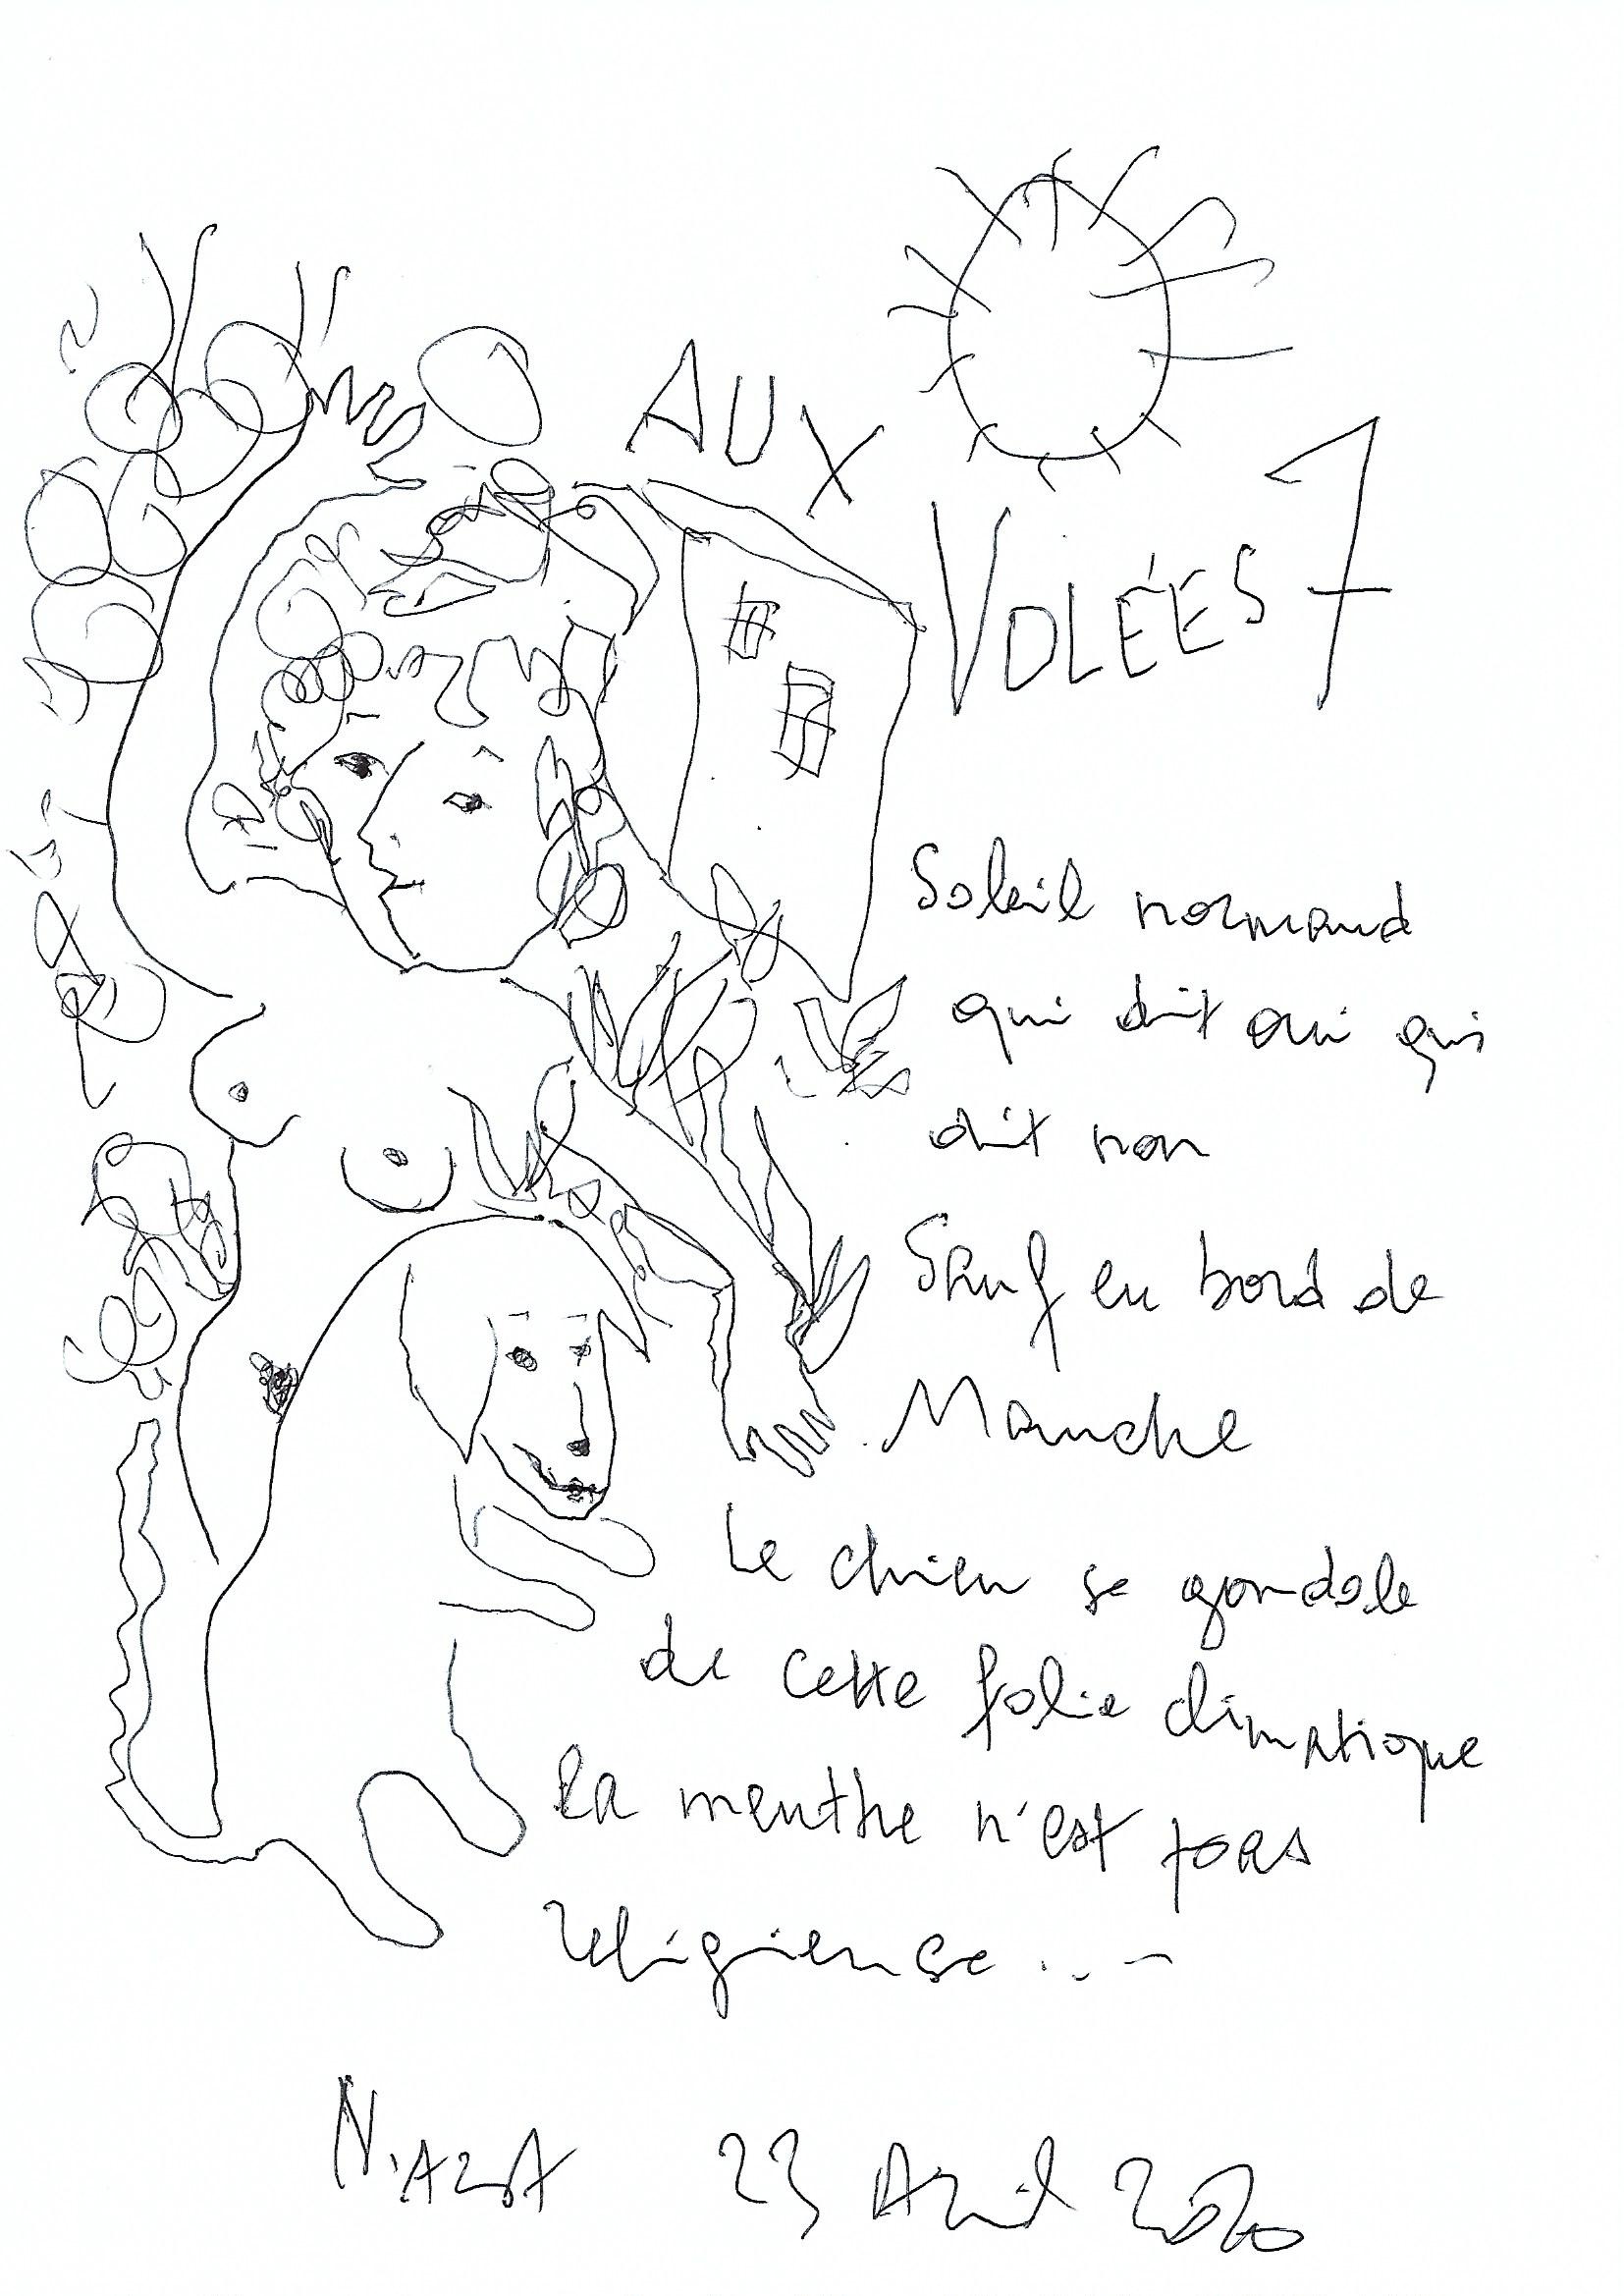 AUX
VOLÉES 7
Soleil normand
qui dit oui qui
dit non
Sauf en bord de
Manche
Le chien se gondole
de cette folie climatique
la menthe n'est pas
religieuse...
23 Avril 2020